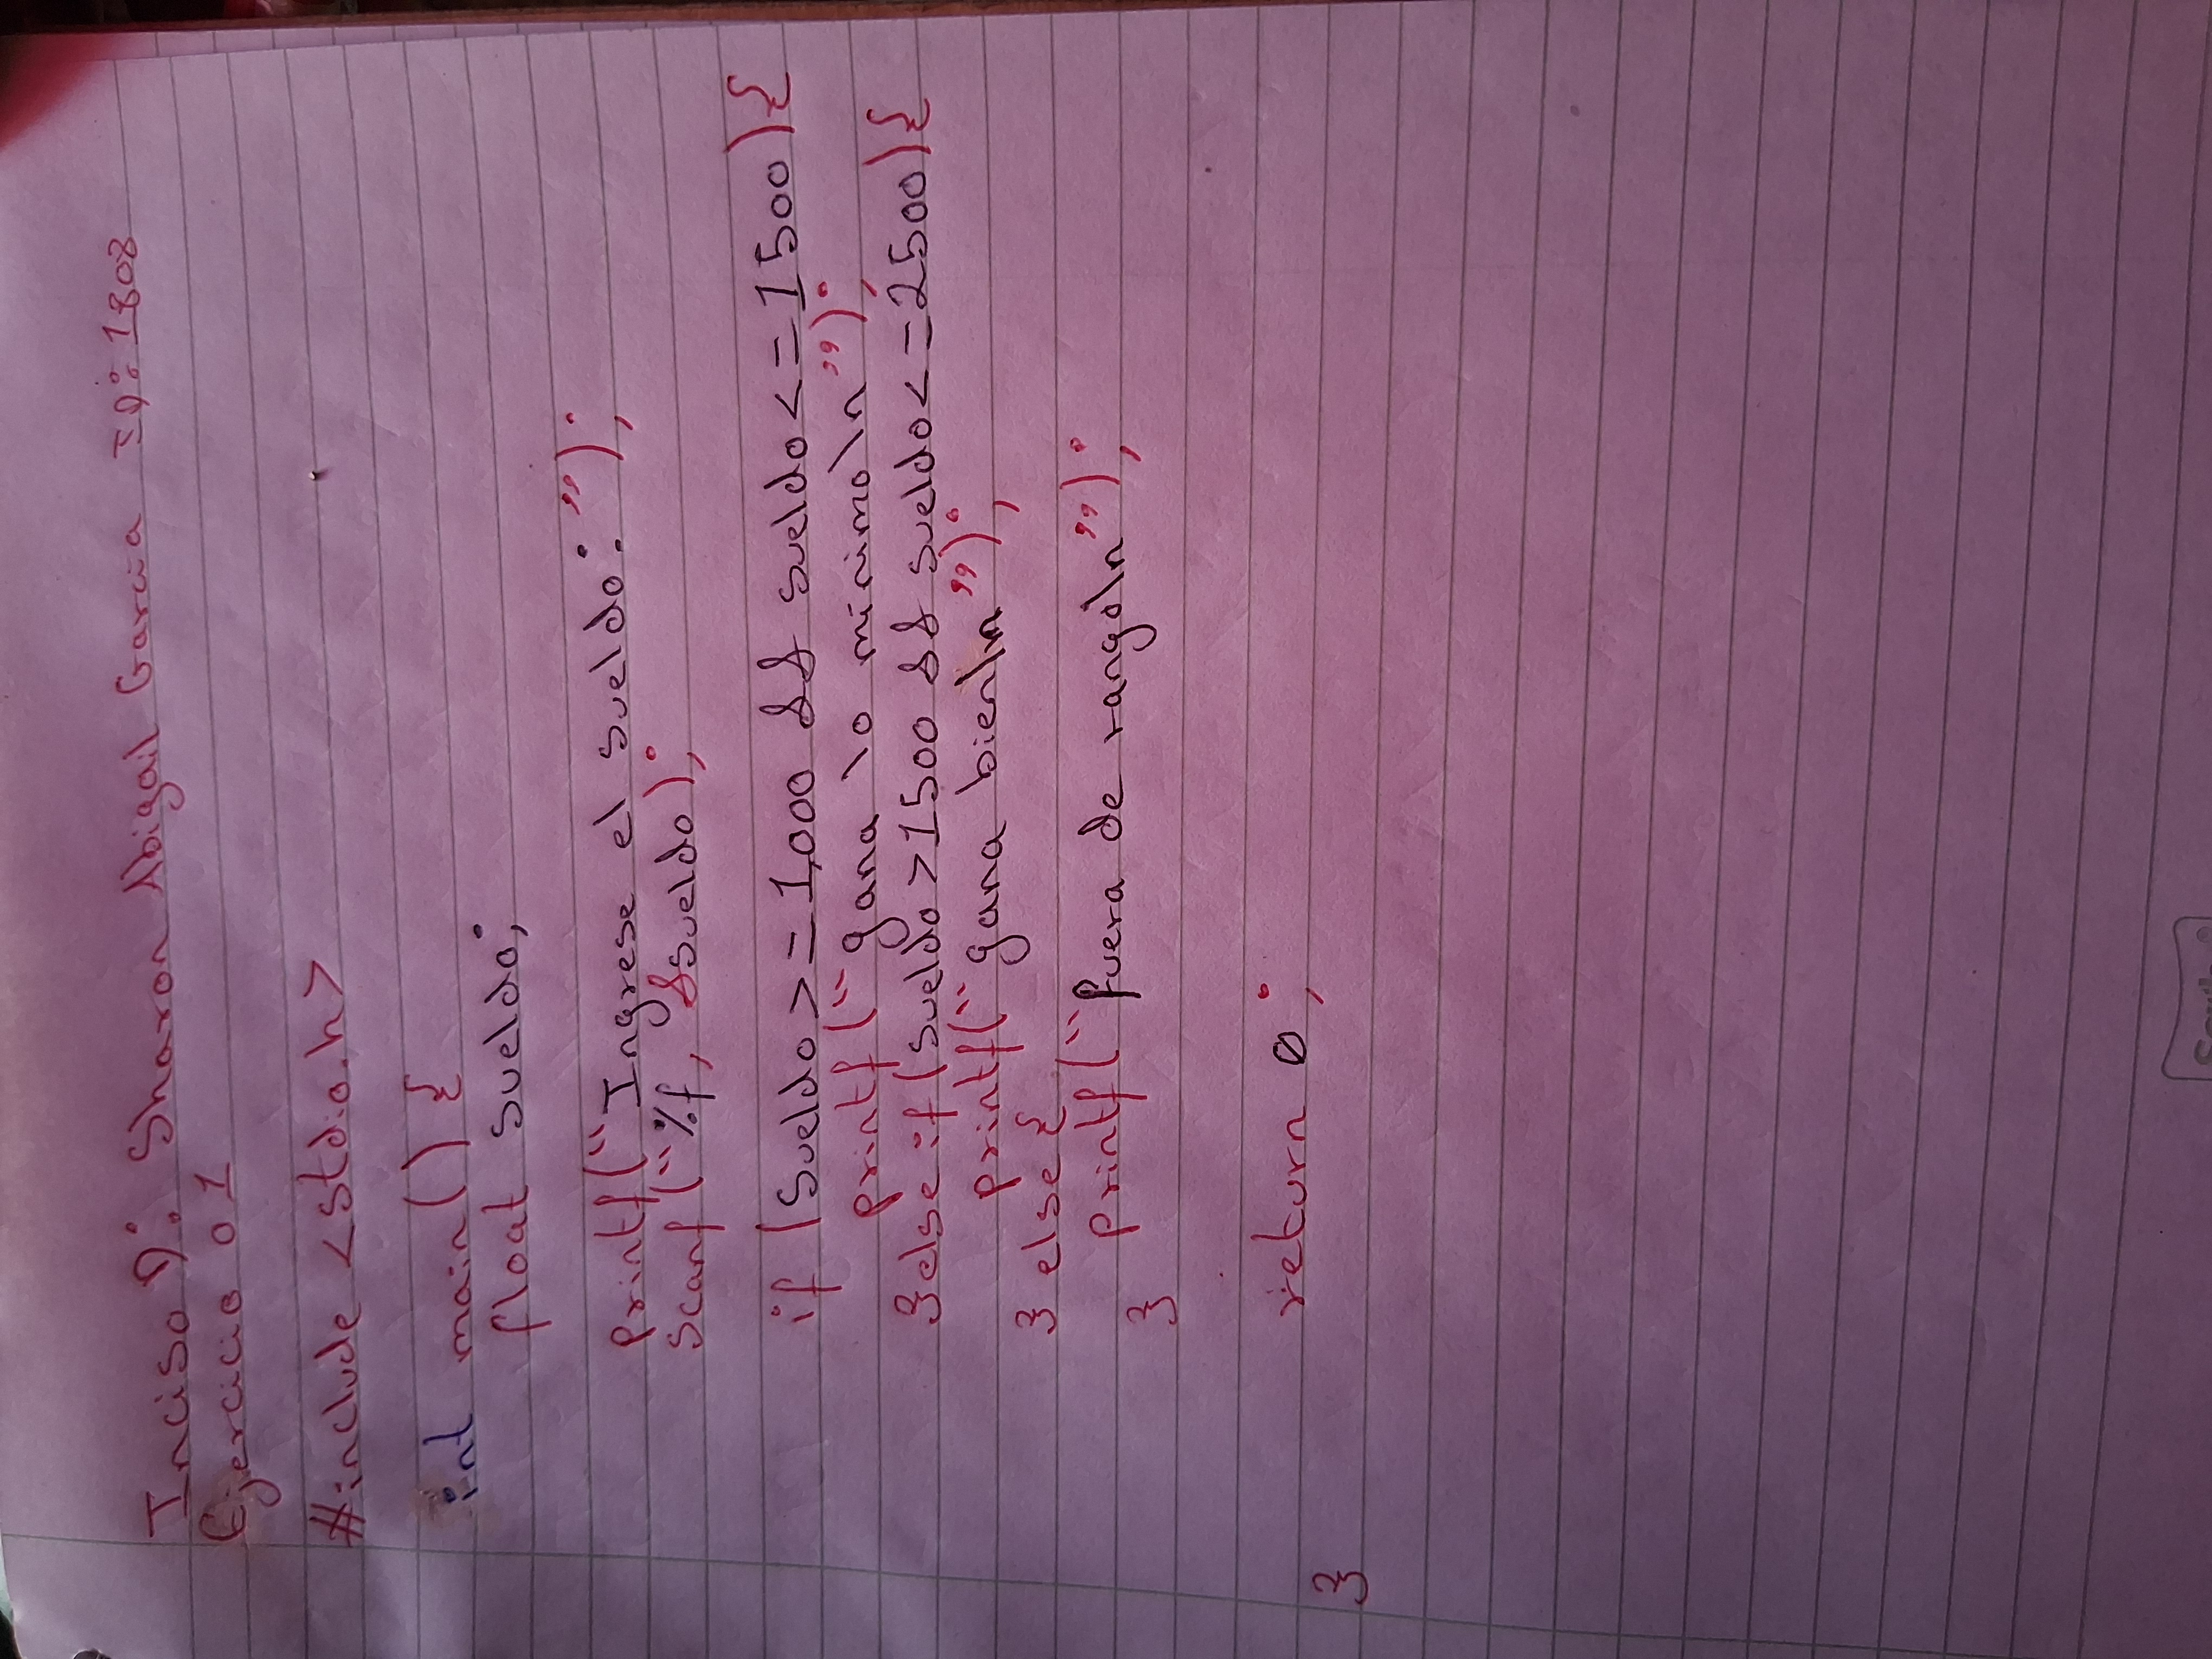 Inciso D: Sharon Abigail Garcia ID: 1808
Ejercicio 01
#include <stdio.h>
int main () {
float sueldo;
printf(" Ingrese el sueldo: ");
scanf ("%f, &sueldo);
if (sueldo >= 1,000 && sueldo <= 1500 ) {
printf (" gana lo mínimo\n");
} else if (sueldo > 1500 && sueldo <= 2500) {
printf(" gana bien\n");
} else {
printf (" fuera de rango\n");
}
return 0;
}